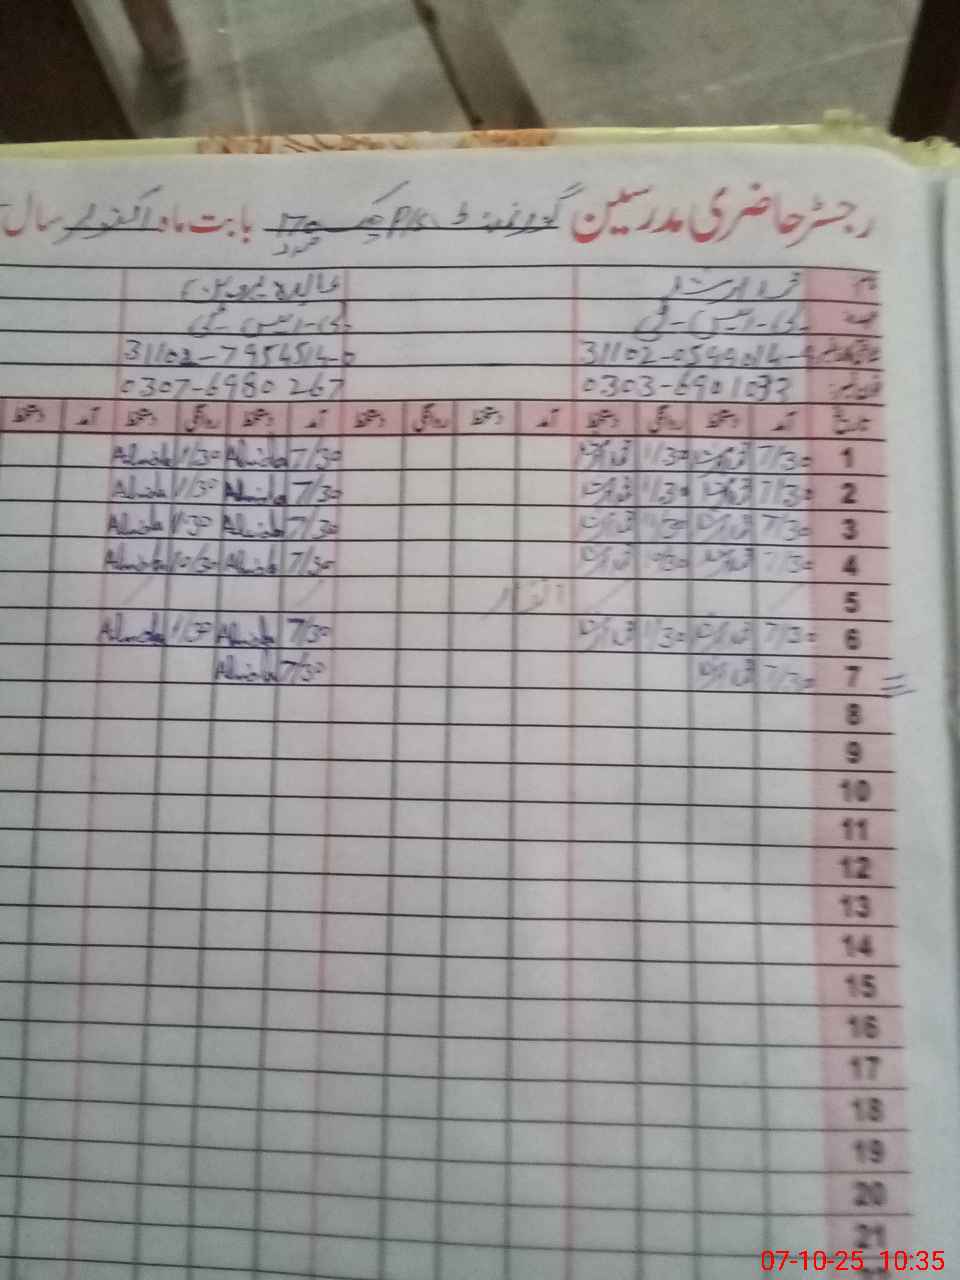 رجسٹر حاضری مدرسین گورنمنٹ P/S چک 170 بابت ماہ اکتوبر سال
نام محمد ارشد عابدہ پروین
عہدہ ای-ایس-ٹی ای-ایس-ٹی
31102-7954514-0
فون نمبر 0303-6901093 0307-6980267
تاریخ آمد دستخط روانگی دستخط آمد دستخط روانگی دستخط آمد دستخط روانگی دستخط آمد دستخط
1 7/30 1/30 7/30 Abida 1/30 Abida
2 7/30 1/30 7/30 Abida 1/30 Abida
3 7/30 11/30 7/30 Abida 1/30 Abida
4 7/30 10/30 7/30 Abida 10/30 Abida
5 اتوار
6 7/30 1/30 7/30 Abida 1/30 Abida
7 7/30 7/30 Abida
8
9
10
11
12
13
14
15
16
17
18
19
20
21
07-10-25 10:35